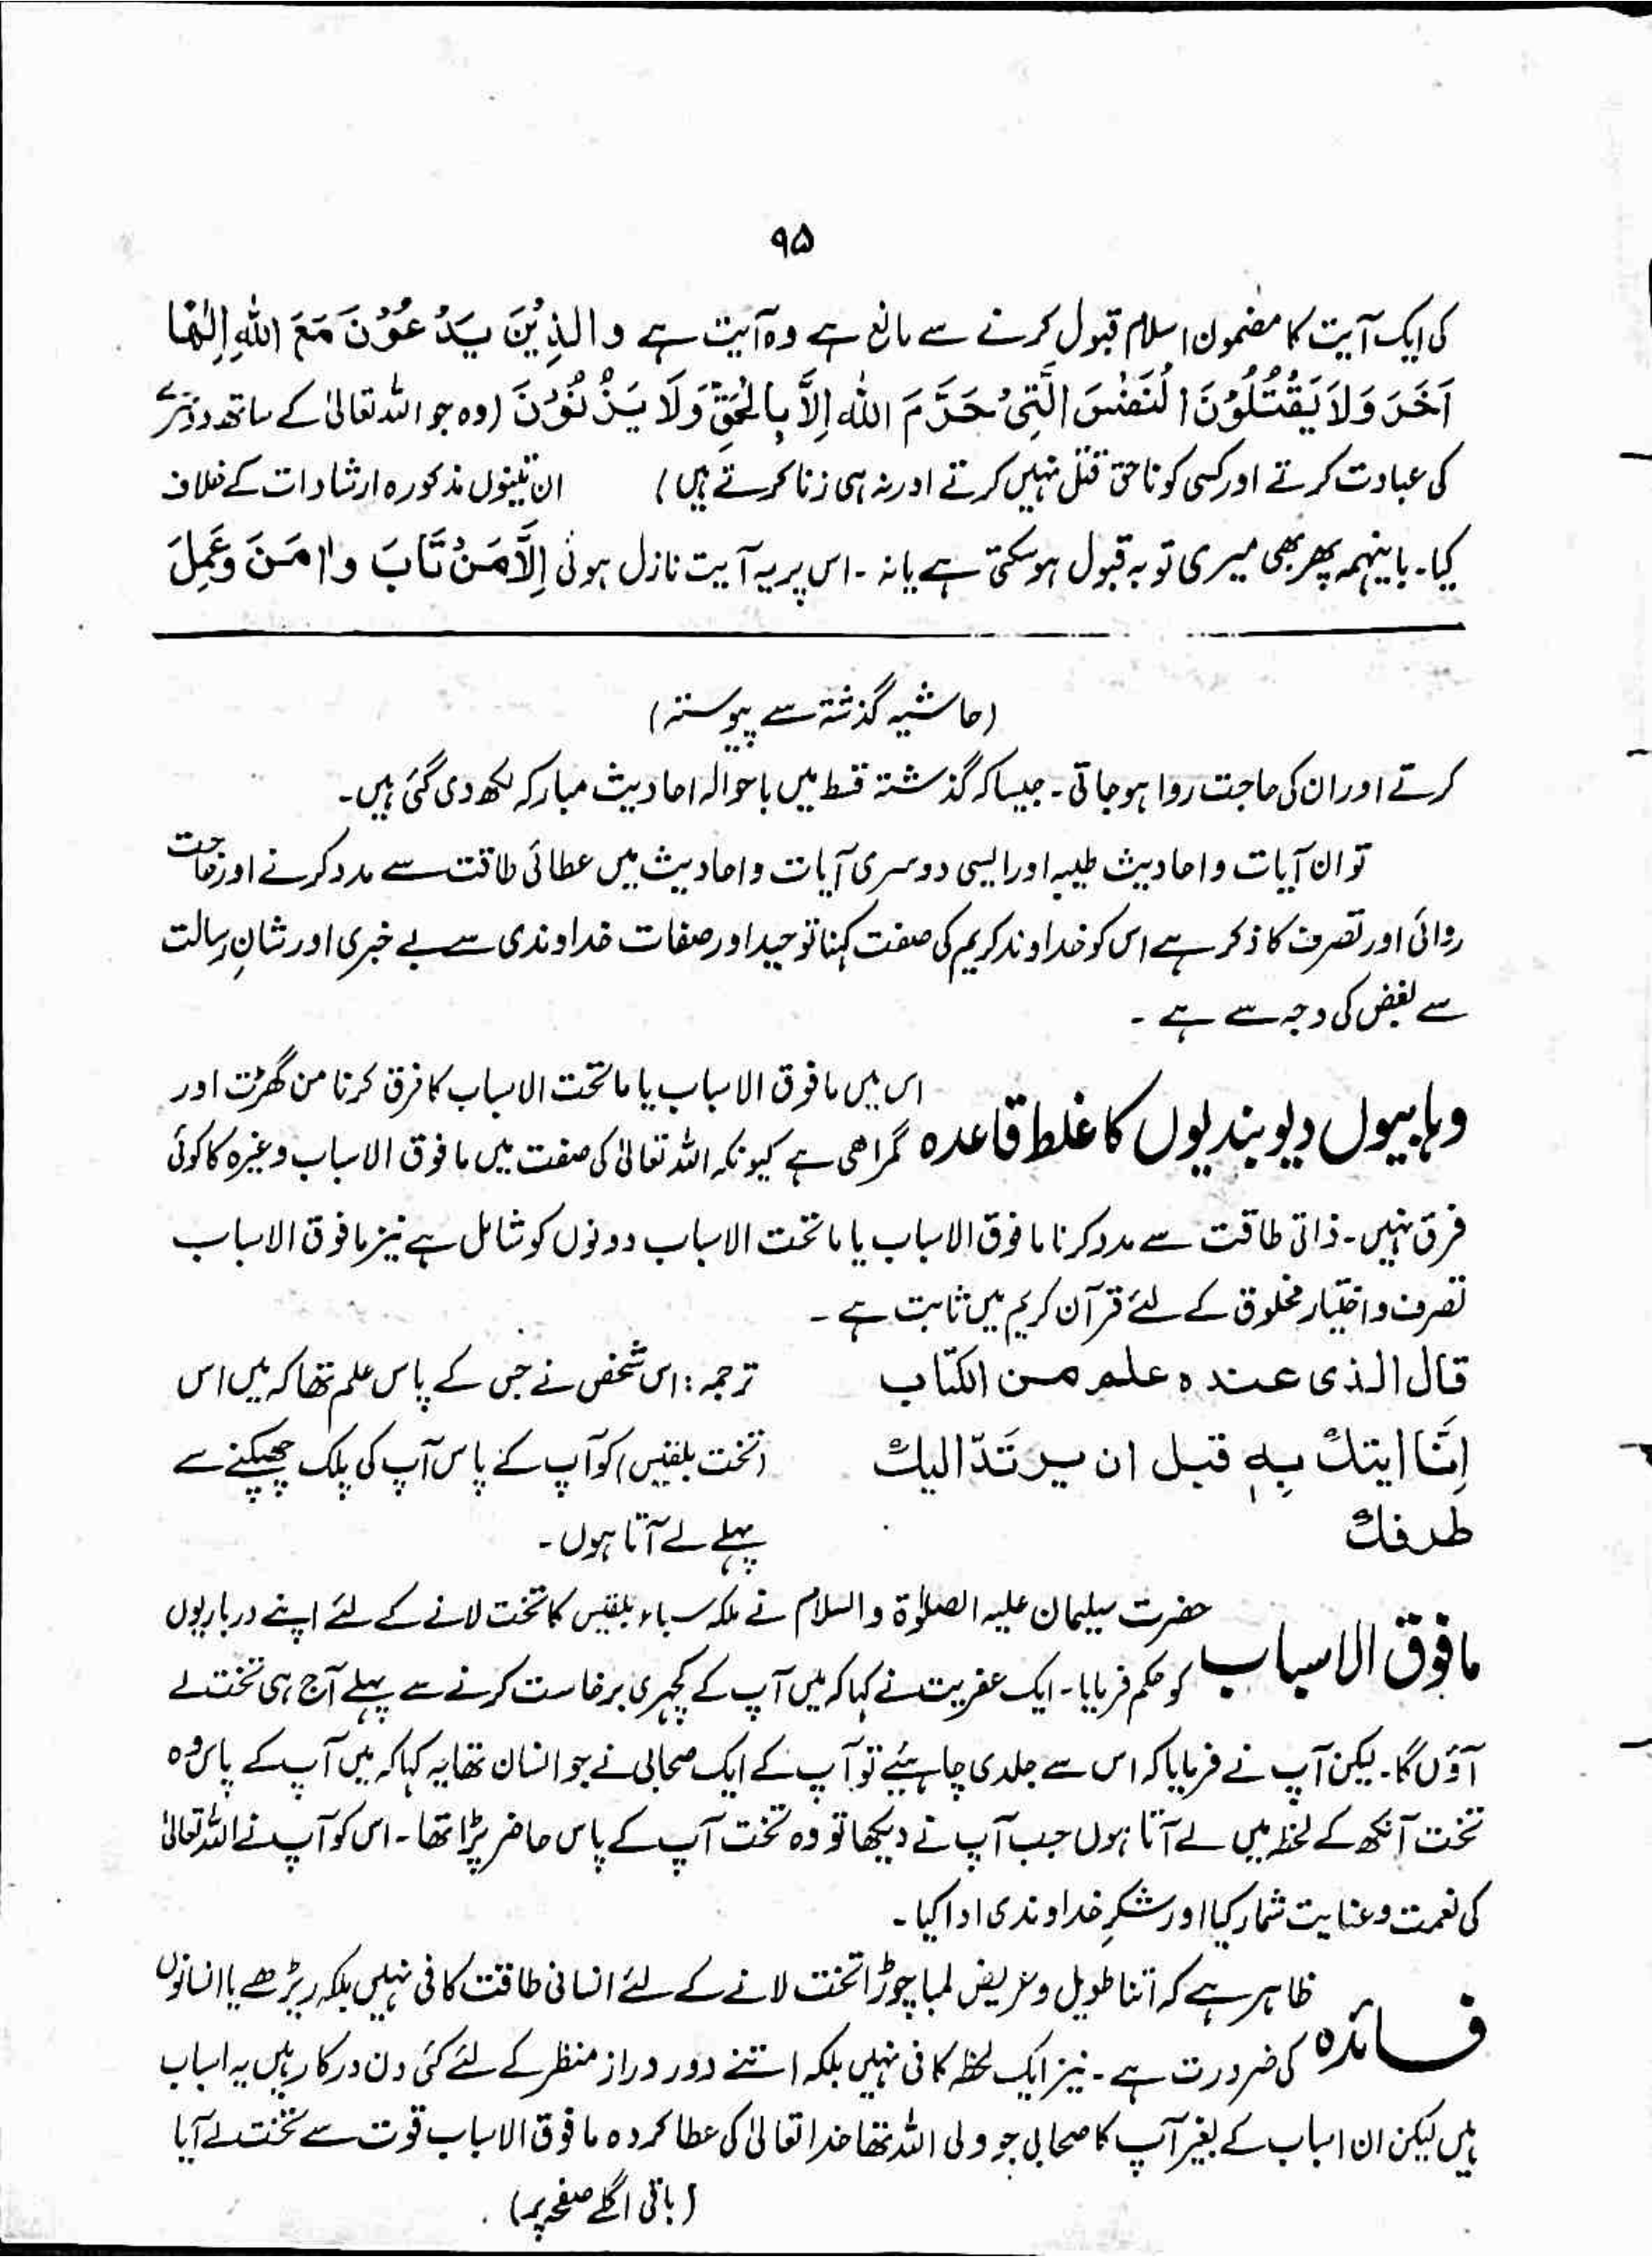 ۹۵
کی ایک آیت کا مضمون اسلام قبول کرنے سے مانع ہے وہ آیت ہے والذِیْنَ یَدْعُوْنَ مَعَ اللهِ اِلٰھًا
اٰخَرَ وَلَا یَقْتُلُوْنَ النَفْسَ الَّتِیْ حَرَّمَ اللهُ اِلاَّ بِالْحَقِّ وَلَا یَزْنُوْنَ (وہ جو اللہ تعالیٰ کے ساتھ دوسرے
کی عبادت کرتے اور کسی کو ناحق قتل نہیں کرتے اور نہ ہی زنا کرتے ہیں) ان تینوں مذکورہ ارشادات کے خلاف
کیا۔ باینہمہ پھر بھی میری توبہ قبول ہوسکتی ہے یا نہ ۔ اس پر یہ آیت نازل ہوئی اِلاَّ مَنْ تَابَ واٰمَنَ وَعَمِلَ
(حاشیہ گذشتہ سے پیوستہ)
کرتے اور ان کی حاجت روا ہو جاتی ۔ جیسا کہ گذشتہ قسط میں باحوالہ احادیث مبارکہ لکھ دی گئی ہیں۔
تو ان آیات و احادیث طیبہ اور ایسی دوسری آیات و احادیث میں عطائی طاقت سے مدد کرنے اور حاجت
روائی اور تصرف کا ذکر ہے اس کو خداوند کریم کی صفت کہنا توحید اور صفات خداوندی سے بے خبری اور شانِ رسالت
سے بغض کی وجہ سے ہے ۔
وہابیوں دیوبندیوں کا غلط قاعدہ اس میں مافوق الاسباب یا ماتحت الاسباب کا فرق کرنا من گھڑت اور
گمراھی ہے کیونکہ اللہ تعالیٰ کی صفت میں مافوق الاسباب وغیرہ کا کوئی
فرق نہیں ۔ ذاتی طاقت سے مدد کرنا مافوق الاسباب یا ماتحت الاسباب دونوں کو شامل ہے نیز مافوق الاسباب
تصرف و اختیار مخلوق کے لئے قرآن کریم میں ثابت ہے ۔
قال الذی عندہ علم من الکتاب ترجمہ: اس شخص نے جس کے پاس علم تھا کہ میں اس
اِنَّا ایتك بِہٖ قبل ان یرتَدّ الیك (تخت بلقیس) کو آپ کے پاس آپ کی پلک جھپکنے سے
طرفك پہلے لے آتا ہوں ۔
مافوق الاسباب حضرت سیلمان علیہ الصلوٰۃ والسلام نے ملکہ سباء بلقیس کا تخت لانے کے لئے اپنے درباریوں
کو حکم فرمایا ۔ ایک عفریت نے کہا کہ میں آپ کے کچہری برخاست کرنے سے پہلے آج ہی تخت لے
آؤں گا ۔ لیکن آپ نے فرمایا کہ اس سے جلدی چاہیئے تو آپ کے ایک صحابی نے جو انسان تھا یہ کہا کہ میں آپ کے پاس وہ
تخت آنکھ کے لحظہ میں لے آتا ہوں جب آپ نے دیکھا تو وہ تخت آپ کے پاس حاضر پڑا تھا ۔ اس کو آپ نے اللہ تعالیٰ
کی نعمت و عنایت شمار کیا اور شکرِ خداوندی ادا کیا ۔
فائدہ ظاہر ہے کہ اتنا طویل و عریض لمبا چوڑا تخت لانے کے لئے انسانی طاقت کافی نہیں بلکہ ریڑھے یا انسانوں
کی ضرورت ہے ۔ نیز ایک لحظہ کافی نہیں بلکہ اتنے دور دراز منظر کے لئے کئی دن درکار ہیں یہ اسباب
ہیں لیکن ان اسباب کے بغیر آپ کا صحابی جو ولی اللہ تھا خدا تعالیٰ کی عطا کردہ مافوق الاسباب قوت سے تخت لے آیا
(باقی اگلے صفحہ پر)